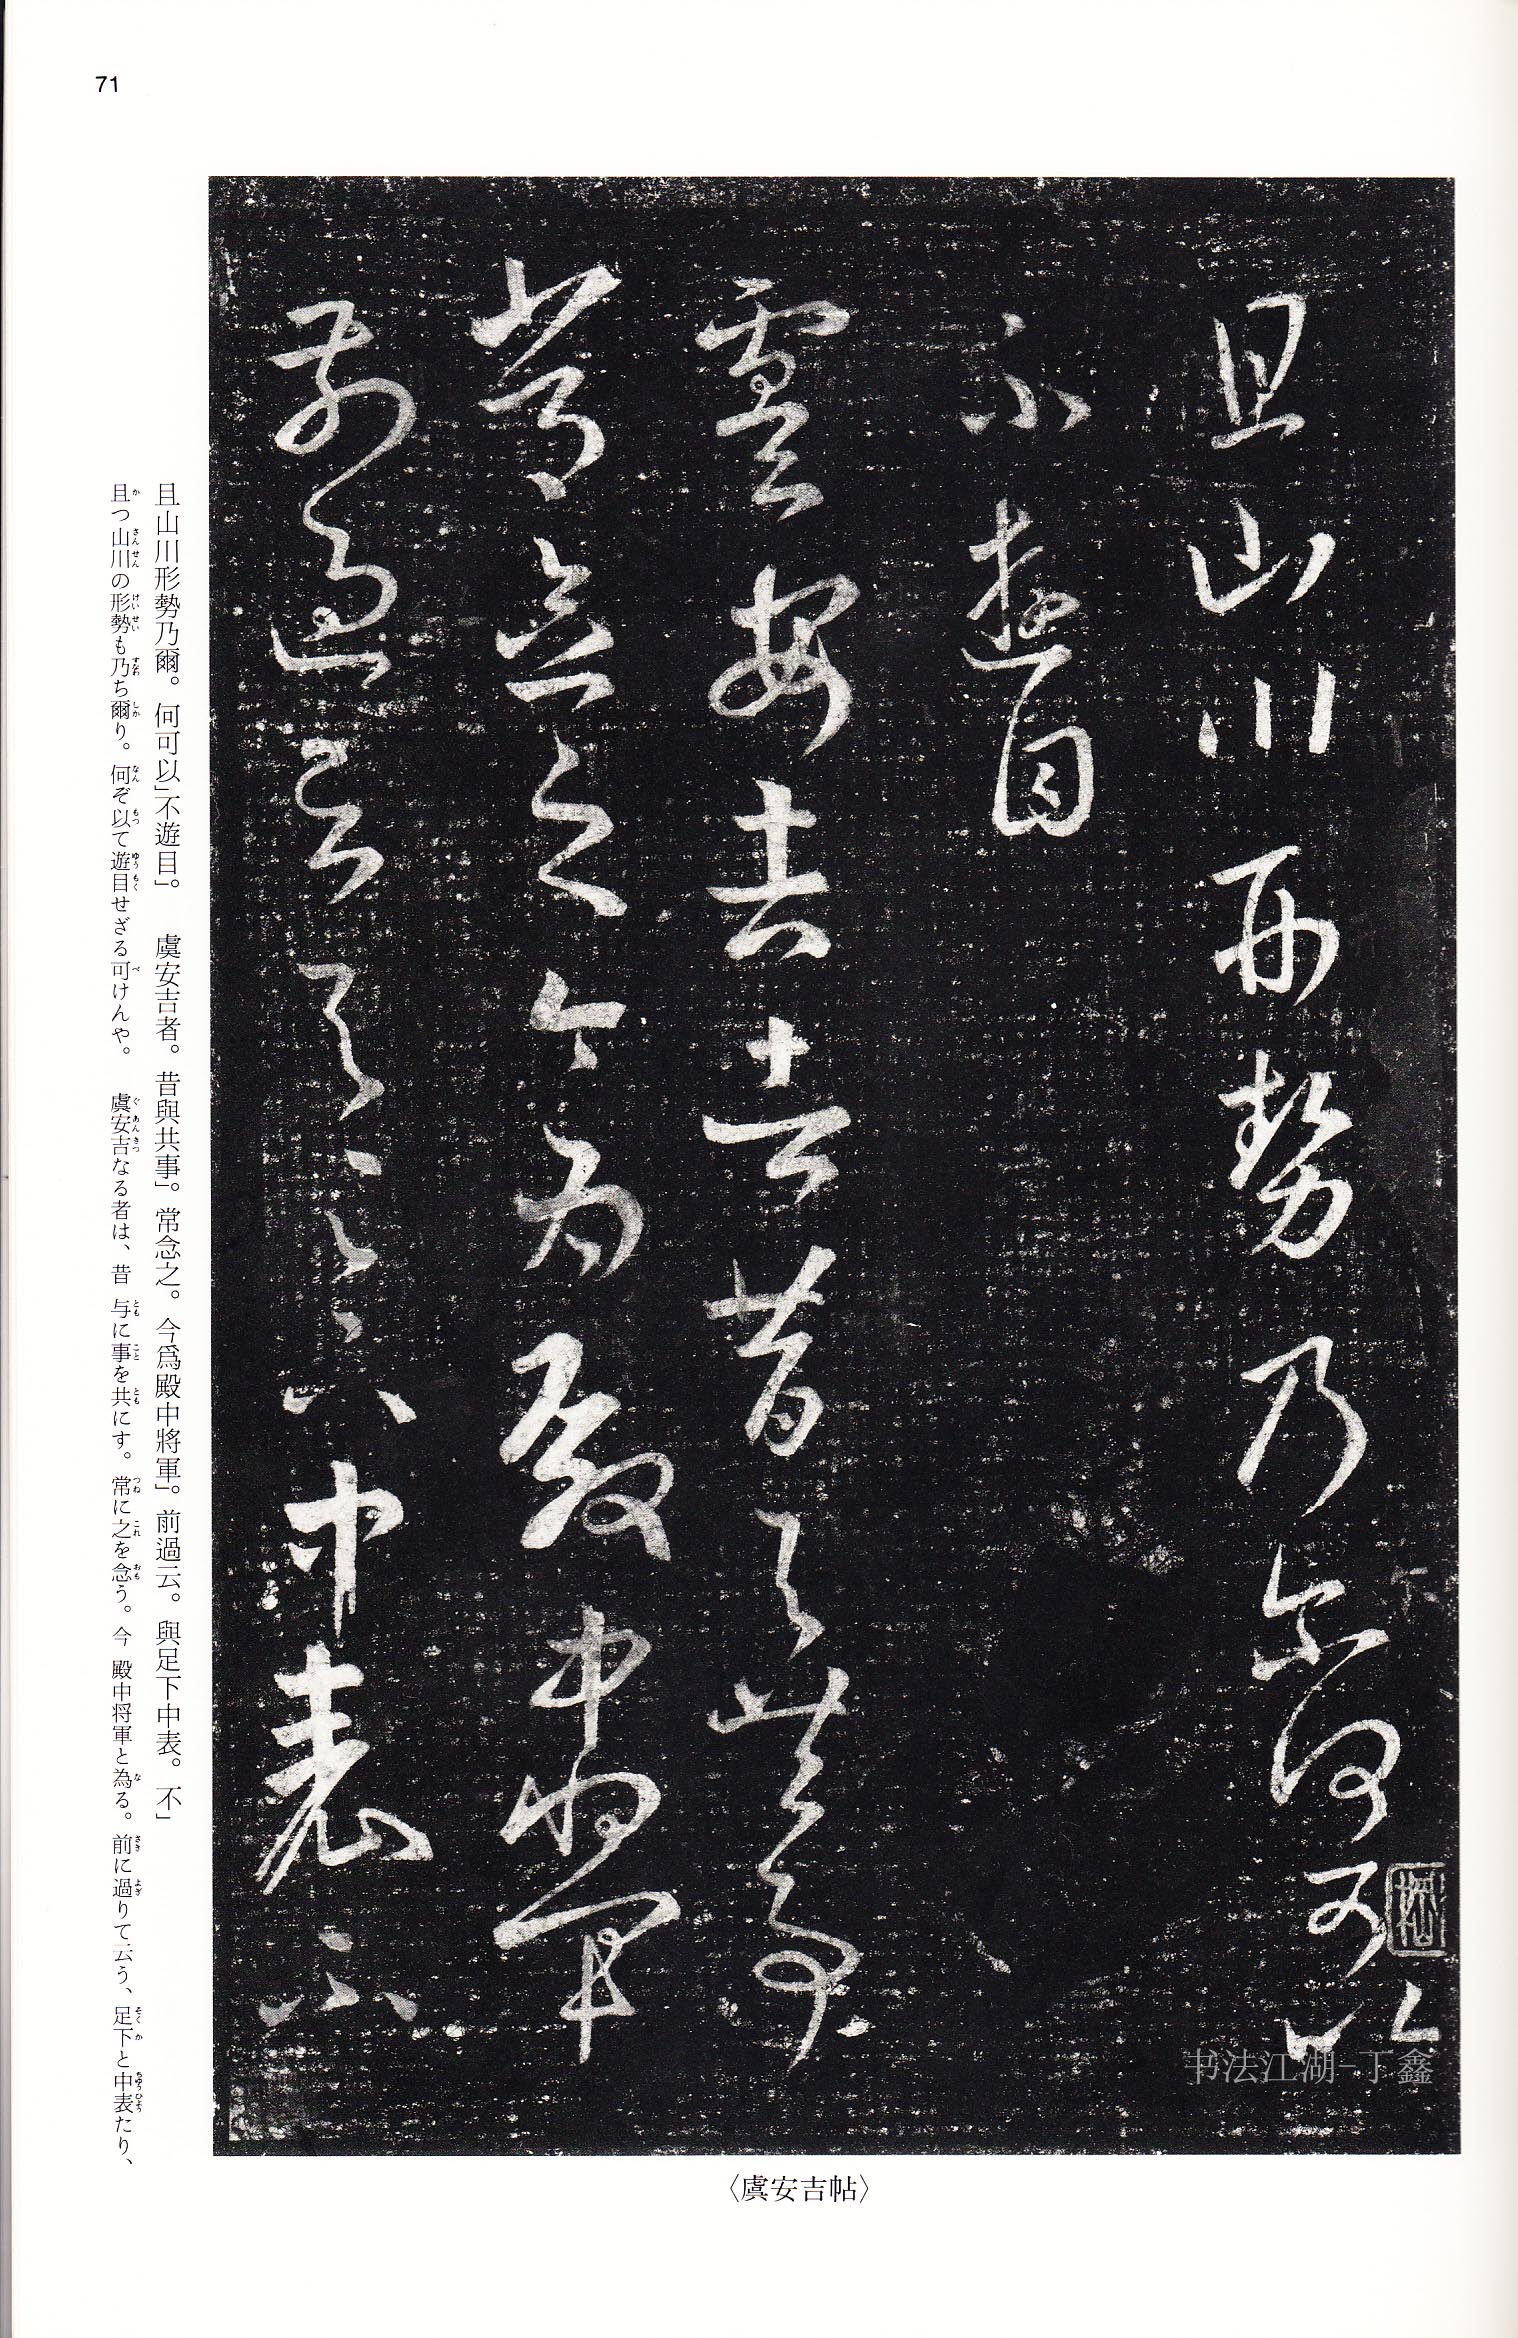 71
且山川形勢乃爾何可以
不遊目
虞安吉者昔與共事
常念之今爲殿中將軍
前過云與足下中表不
书法江湖-丁鑫
〈虞安吉帖〉
且山川形勢乃爾。何可以」不遊目」。　虞安吉者。昔與共事」。常念之。今爲殿中將軍」。前過云。與足下中表。不」
且つ山川の形勢も乃ち爾り。何ぞ以て遊目せざる可けんや。　虞安吉なる者は、昔 与に事を共にす。常に之を念う。今 殿中将軍と為る。前に過りて云う、足下と中表たり、